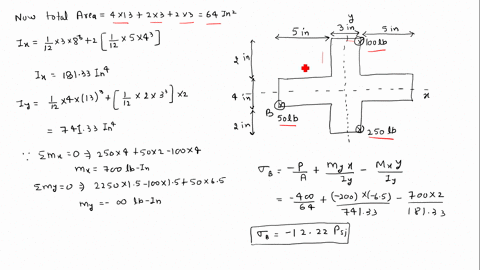 Now total Area = 4×13 + 2×3 + 2×3 = 64 In²
Ix = 1/12 × 3 × 8³ + 2 [1/12 × 5 × 4³]
Ix = 181.33 In⁴
Iy = 1/12 × 4 × (13)³ + [1/12 × 2 × 3³] × 2
= 741.33 In⁴
∵ Σmx = 0 ⇒ 250×4 + 50×2 - 100×4
mx = 700 lb-In
Σmy = 0 ⇒ 2250×1.5 - 100×1.5 + 50×6.5
my = - 00 lb-In
y
5 in
3 in
5 in
100 lb
2 in
4 in
2 in
x
B
50 lb
250 lb
σB = -P/A + my x/Iy - Mx y/Iy
= -400/64 + (-200)×(-6.5)/741.33 - 700×2/181.33
σB = -12.22 Psi